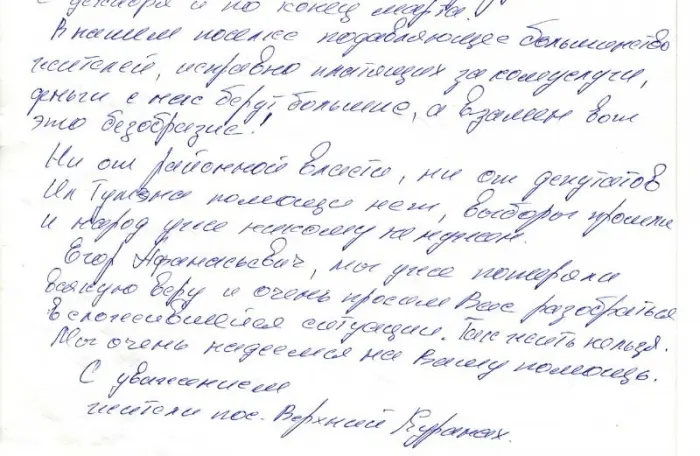 с декабря и по конец марта.
В нашем поселке подавляющее большинство
жителей, исправно платящих за комуслуги,
деньги с нас берут большие, а взамен вот
это безобразие!
Ни от районной власти, ни от депутатов
Ил Тумэна помощи нет, выборы прошли
и народ уже никому не нужен.
Егор Афанасьевич, мы уже потеряли
всякую веру и очень просим Вас разобраться
в сложившейся ситуации. Так жить нельзя.
Мы очень надеемся на Вашу помощь.
С уважением
жители пос. Верхний Куранах.